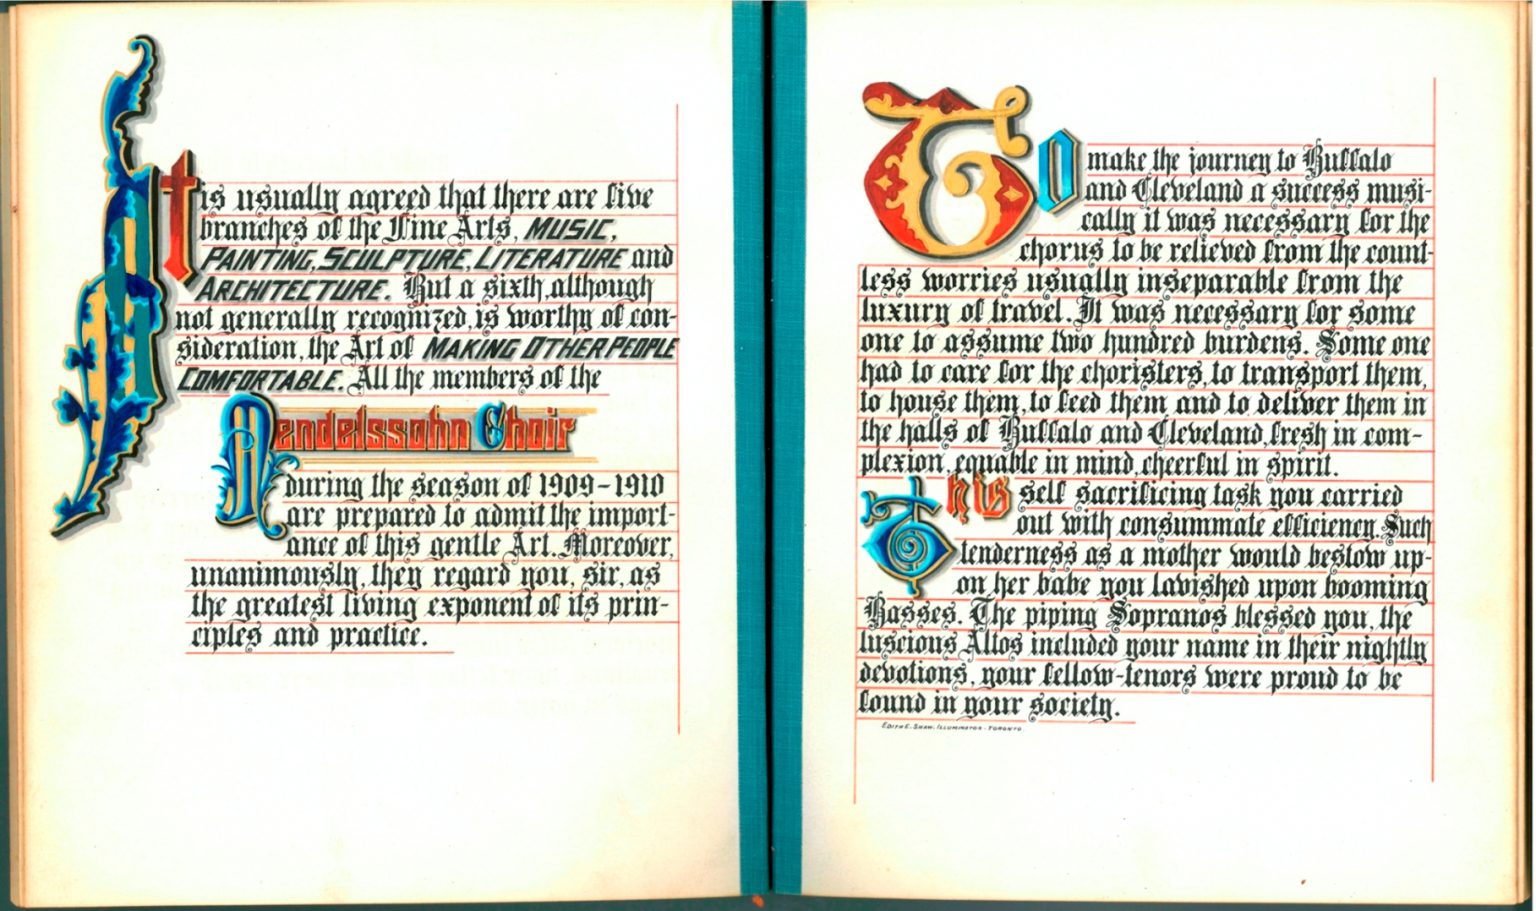 It is usually agreed that there are five
branches of the Fine Arts, MUSIC,
PAINTING, SCULPTURE, LITERATURE and
ARCHITECTURE. But a sixth, although
not generally recognized, is worthy of con-
sideration, the Art of MAKING OTHER PEOPLE
COMFORTABLE. All the members of the
Mendelssohn Choir
during the season of 1909-1910
are prepared to admit the import-
ance of this gentle Art. Moreover,
unanimously, they regard you, sir, as
the greatest living exponent of its prin-
ciples and practice.
To make the journey to Buffalo
and Cleveland a success musi-
cally it was necessary for the
chorus to be relieved from the count-
less worries usually inseparable from the
luxury of travel. It was necessary for some
one to assume two hundred burdens. Some one
had to care for the choristers, to transport them,
to house them, to feed them and to deliver them in
the halls of Buffalo and Cleveland, fresh in com-
plexion, equable in mind, cheerful in spirit.
This self sacrificing task you carried
out with consummate efficiency. Such
tenderness as a mother would bestow up-
on her babe you lavished upon booming
Basses. The piping Sopranos blessed you, the
luscious Altos included your name in their nightly
devotions, your fellow-tenors were proud to be
found in your society.
EDITH E. SHAW, ILLUMINATOR - TORONTO.